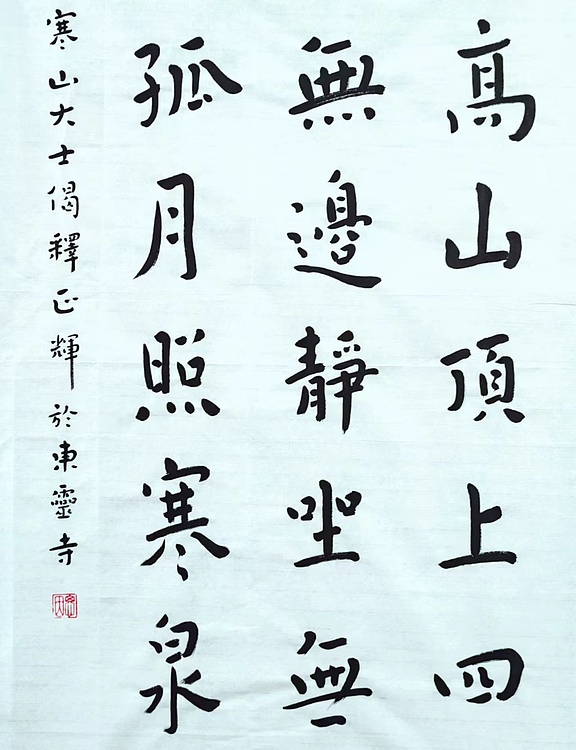 高山頂上四
無邊靜坐無
孤月照寒泉
寒山大士偈釋正輝於東靈寺